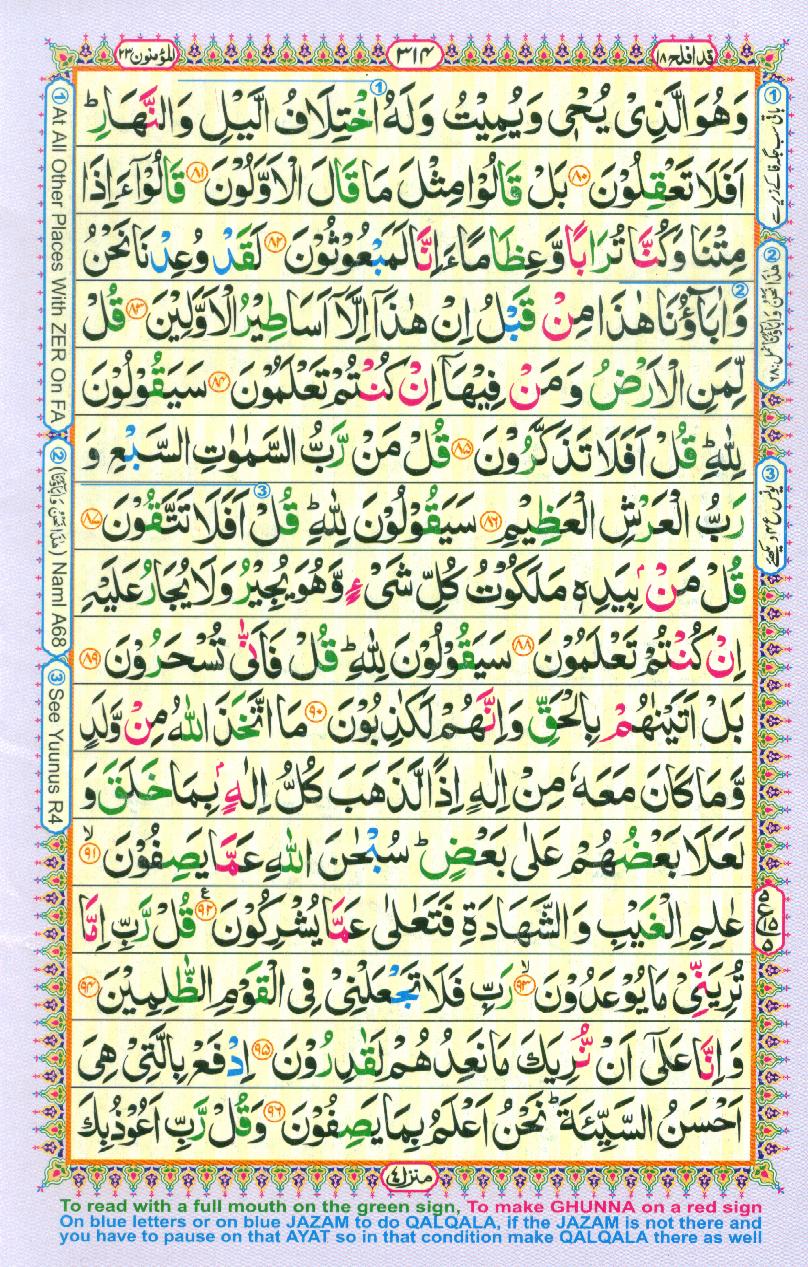 المؤمنون ٢٣
٣١٤
قد افلح ١٨
وَهُوَ الَّذِیْ یُحْیٖ وَیُمِیْتُ وَلَهُ اخْتِلَافُ الَّیْلِ وَالنَّهَارِ ؕ
اَفَلَا تَعْقِلُوْنَ ﴿۸۰﴾ بَلْ قَالُوْا مِثْلَ مَا قَالَ الْاَوَّلُوْنَ ﴿۸۱﴾ قَالُوْۤا ءَاِذَا
مِتْنَا وَكُنَّا تُرَابًا وَّعِظَامًا ءَاِنَّا لَمَبْعُوْثُوْنَ ﴿۸۲﴾ لَقَدْ وُعِدْنَا نَحْنُ
وَاٰبَآؤُنَا هٰذَا مِنْ قَبْلُ اِنْ هٰذَاۤ اِلَّاۤ اَسَاطِیْرُ الْاَوَّلِیْنَ ﴿۸۳﴾ قُلْ
لِّمَنِ الْاَرْضُ وَمَنْ فِیْهَاۤ اِنْ كُنْتُمْ تَعْلَمُوْنَ ﴿۸۴﴾ سَیَقُوْلُوْنَ
لِلّٰهِ ؕ قُلْ اَفَلَا تَذَكَّرُوْنَ ﴿۸۵﴾ قُلْ مَنْ رَّبُّ السَّمٰوٰتِ السَّبْعِ وَ
رَبُّ الْعَرْشِ الْعَظِیْمِ ﴿۸۶﴾ سَیَقُوْلُوْنَ لِلّٰهِ ؕ قُلْ اَفَلَا تَتَّقُوْنَ ﴿۸۷﴾
قُلْ مَنْۢ بِیَدِهٖ مَلَكُوْتُ كُلِّ شَیْءٍ وَّهُوَ یُجِیْرُ وَلَا یُجَارُ عَلَیْهِ
اِنْ كُنْتُمْ تَعْلَمُوْنَ ﴿۸۸﴾ سَیَقُوْلُوْنَ لِلّٰهِ ؕ قُلْ فَاَنّٰی تُسْحَرُوْنَ ﴿۸۹﴾
بَلْ اَتَیْنٰهُمْ بِالْحَقِّ وَاِنَّهُمْ لَكٰذِبُوْنَ ﴿۹۰﴾ مَا اتَّخَذَ اللّٰهُ مِنْ وَّلَدٍ
وَّمَا كَانَ مَعَهٗ مِنْ اِلٰهٍ اِذًا لَّذَهَبَ كُلُّ اِلٰهٍۭ بِمَا خَلَقَ وَ
لَعَلَا بَعْضُهُمْ عَلٰی بَعْضٍ ؕ سُبْحٰنَ اللّٰهِ عَمَّا یَصِفُوْنَ ﴿۹۱﴾ۙ
عٰلِمِ الْغَیْبِ وَالشَّهَادَةِ فَتَعٰلٰی عَمَّا یُشْرِكُوْنَ ﴿۹۲﴾ع قُلْ رَّبِّ اِمَّا
تُرِیَنِّیْ مَا یُوْعَدُوْنَ ﴿۹۳﴾ۙ رَبِّ فَلَا تَجْعَلْنِیْ فِی الْقَوْمِ الظّٰلِمِیْنَ ﴿۹۴﴾
وَاِنَّا عَلٰۤی اَنْ نُّرِیَكَ مَا نَعِدُهُمْ لَقٰدِرُوْنَ ﴿۹۵﴾ اِدْفَعْ بِالَّتِیْ هِیَ
اَحْسَنُ السَّیِّئَةَ ؕ نَحْنُ اَعْلَمُ بِمَا یَصِفُوْنَ ﴿۹۶﴾ وَقُلْ رَّبِّ اَعُوْذُ بِكَ
منزل ٤
① At All Other Places With ZER On FA
② (هٰذَا نَحْنُ وَاٰبَآؤُنَا) Naml A68
③ See Yuunus R4
To read with a full mouth on the green sign, To make GHUNNA on a red sign
On blue letters or on blue JAZAM to do QALQALA, if the JAZAM is not there and
you have to pause on that AYAT so in that condition make QALQALA there as well